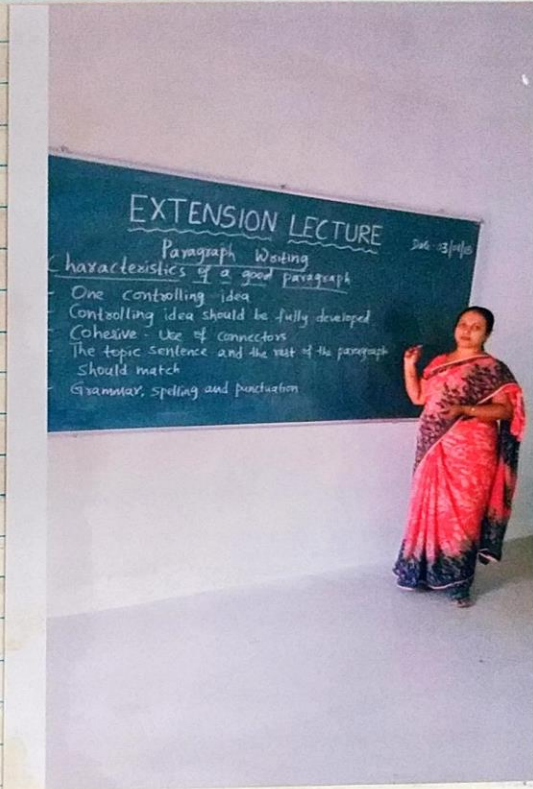 EXTENSION LECTURE
Date
Paragraph Writing
Characteristics of a good paragraph
- One controlling idea
- Controlling idea should be fully developed
- Cohesive - Use of connectors
- The topic sentence and the rest of the paragraph
should match
- Grammar, spelling and punctuation